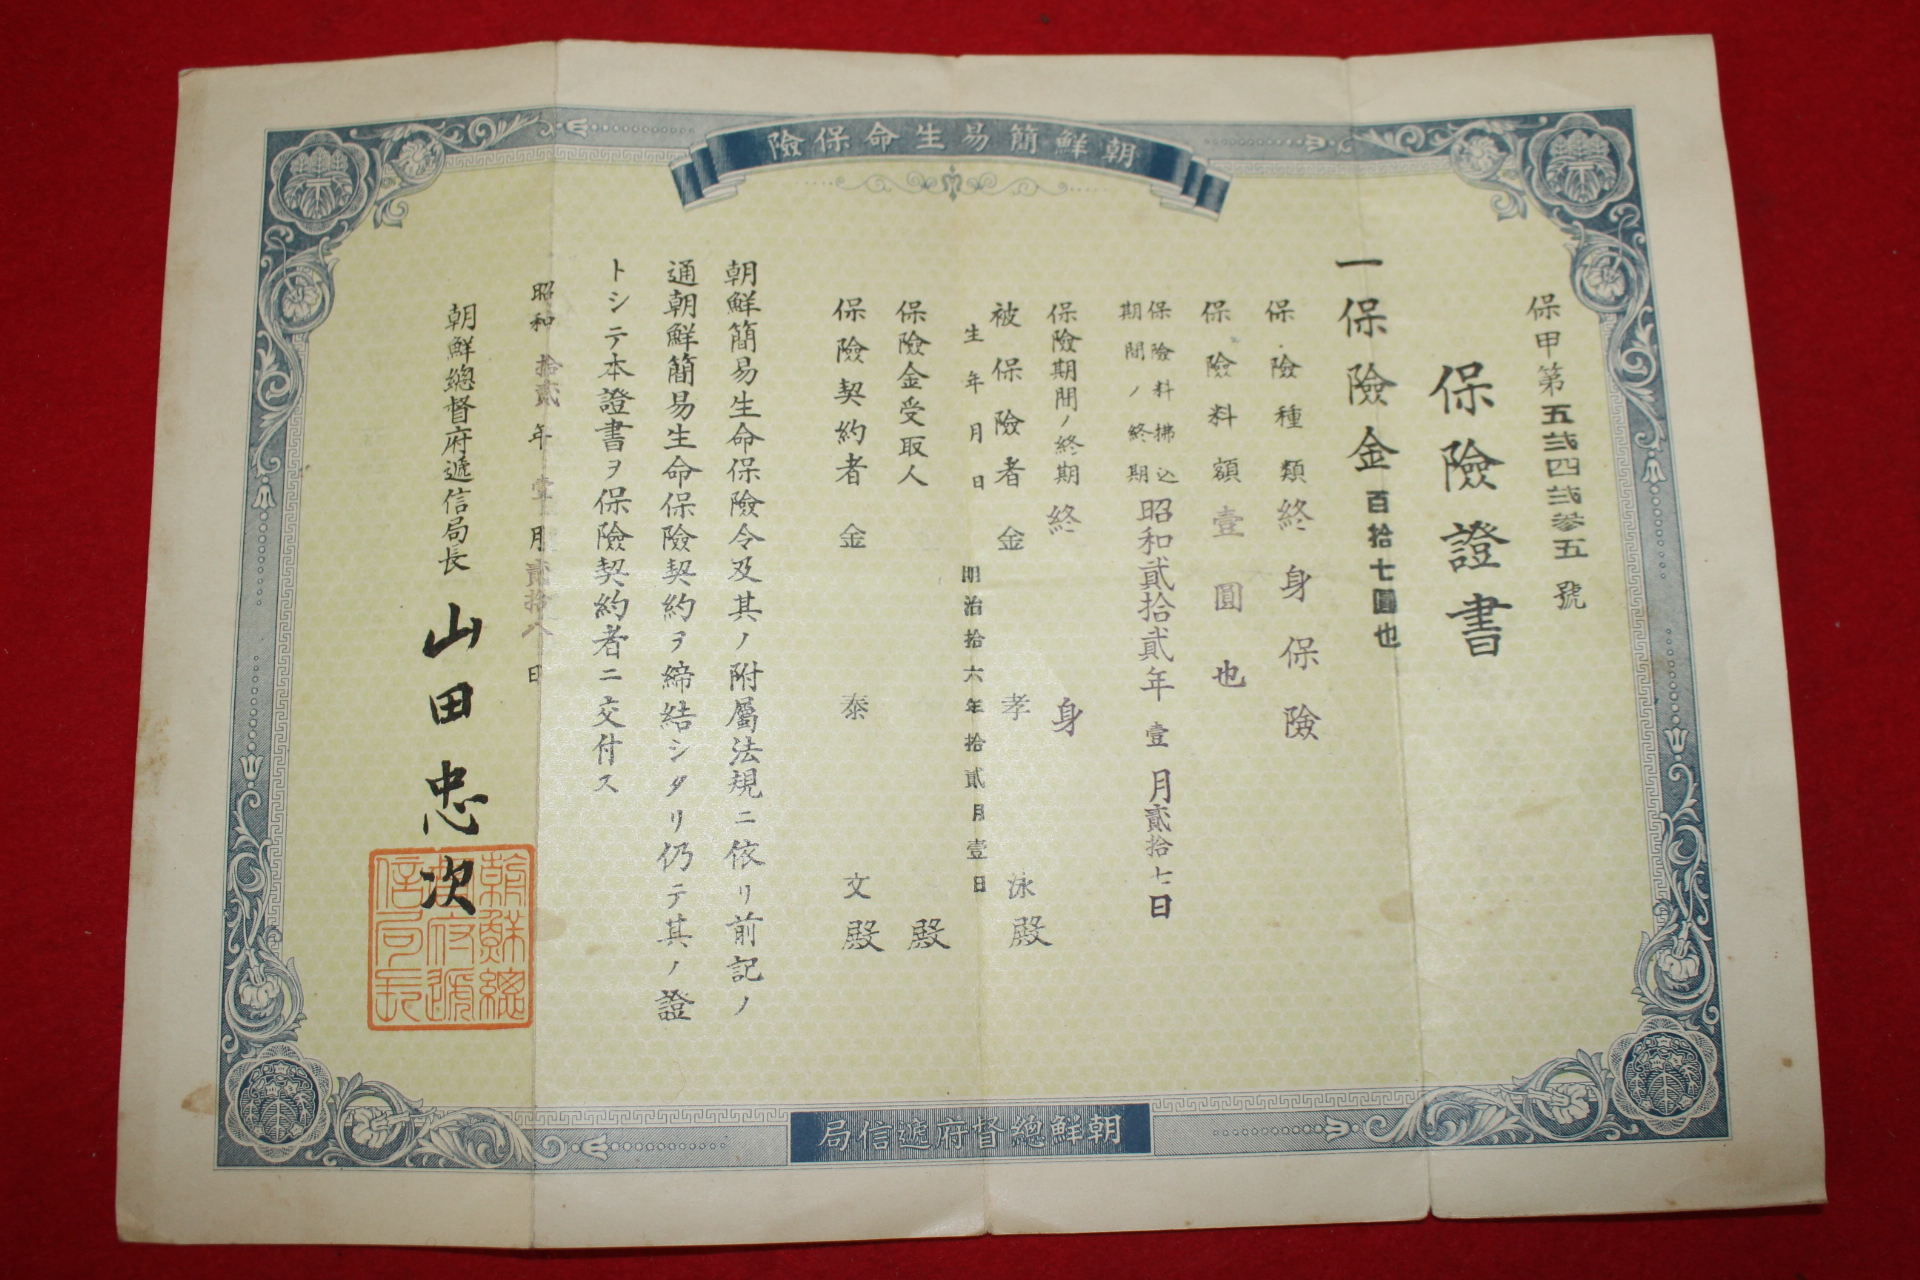 朝鮮簡易生命保險
保甲第五貳四貳參五號
保險證書
一保險金百拾七圓也
保險種類終身保險
保險料額壹圓也
保險料拂込
期間ノ終期
昭和貳拾貳年壹月貳拾七日
保險期間ノ終期終身
被保險者金孝泳殿
生年月日明治拾六年拾貳月壹日
保險金受取人殿
保險契約者金泰文殿
朝鮮簡易生命保險令及其ノ附屬法規ニ依リ前記ノ
通朝鮮簡易生命保險契約ヲ締結シタリ仍テ其ノ證
トシテ本證書ヲ保險契約者ニ交付ス
昭和拾貳年壹月貳拾八日
朝鮮總督府遞信局長山田忠次
朝鮮總督府遞信局長
朝鮮總督府遞信局